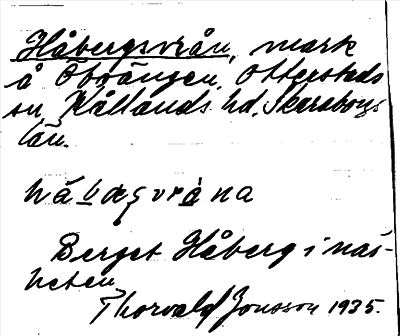 Håbergsvrån, mark
å Öbrängen, Otterstads
sn, Kållands hd, Skaraborgs
län.
Berget Håberg i när-
heten
Thorvald Jonsson 1935.